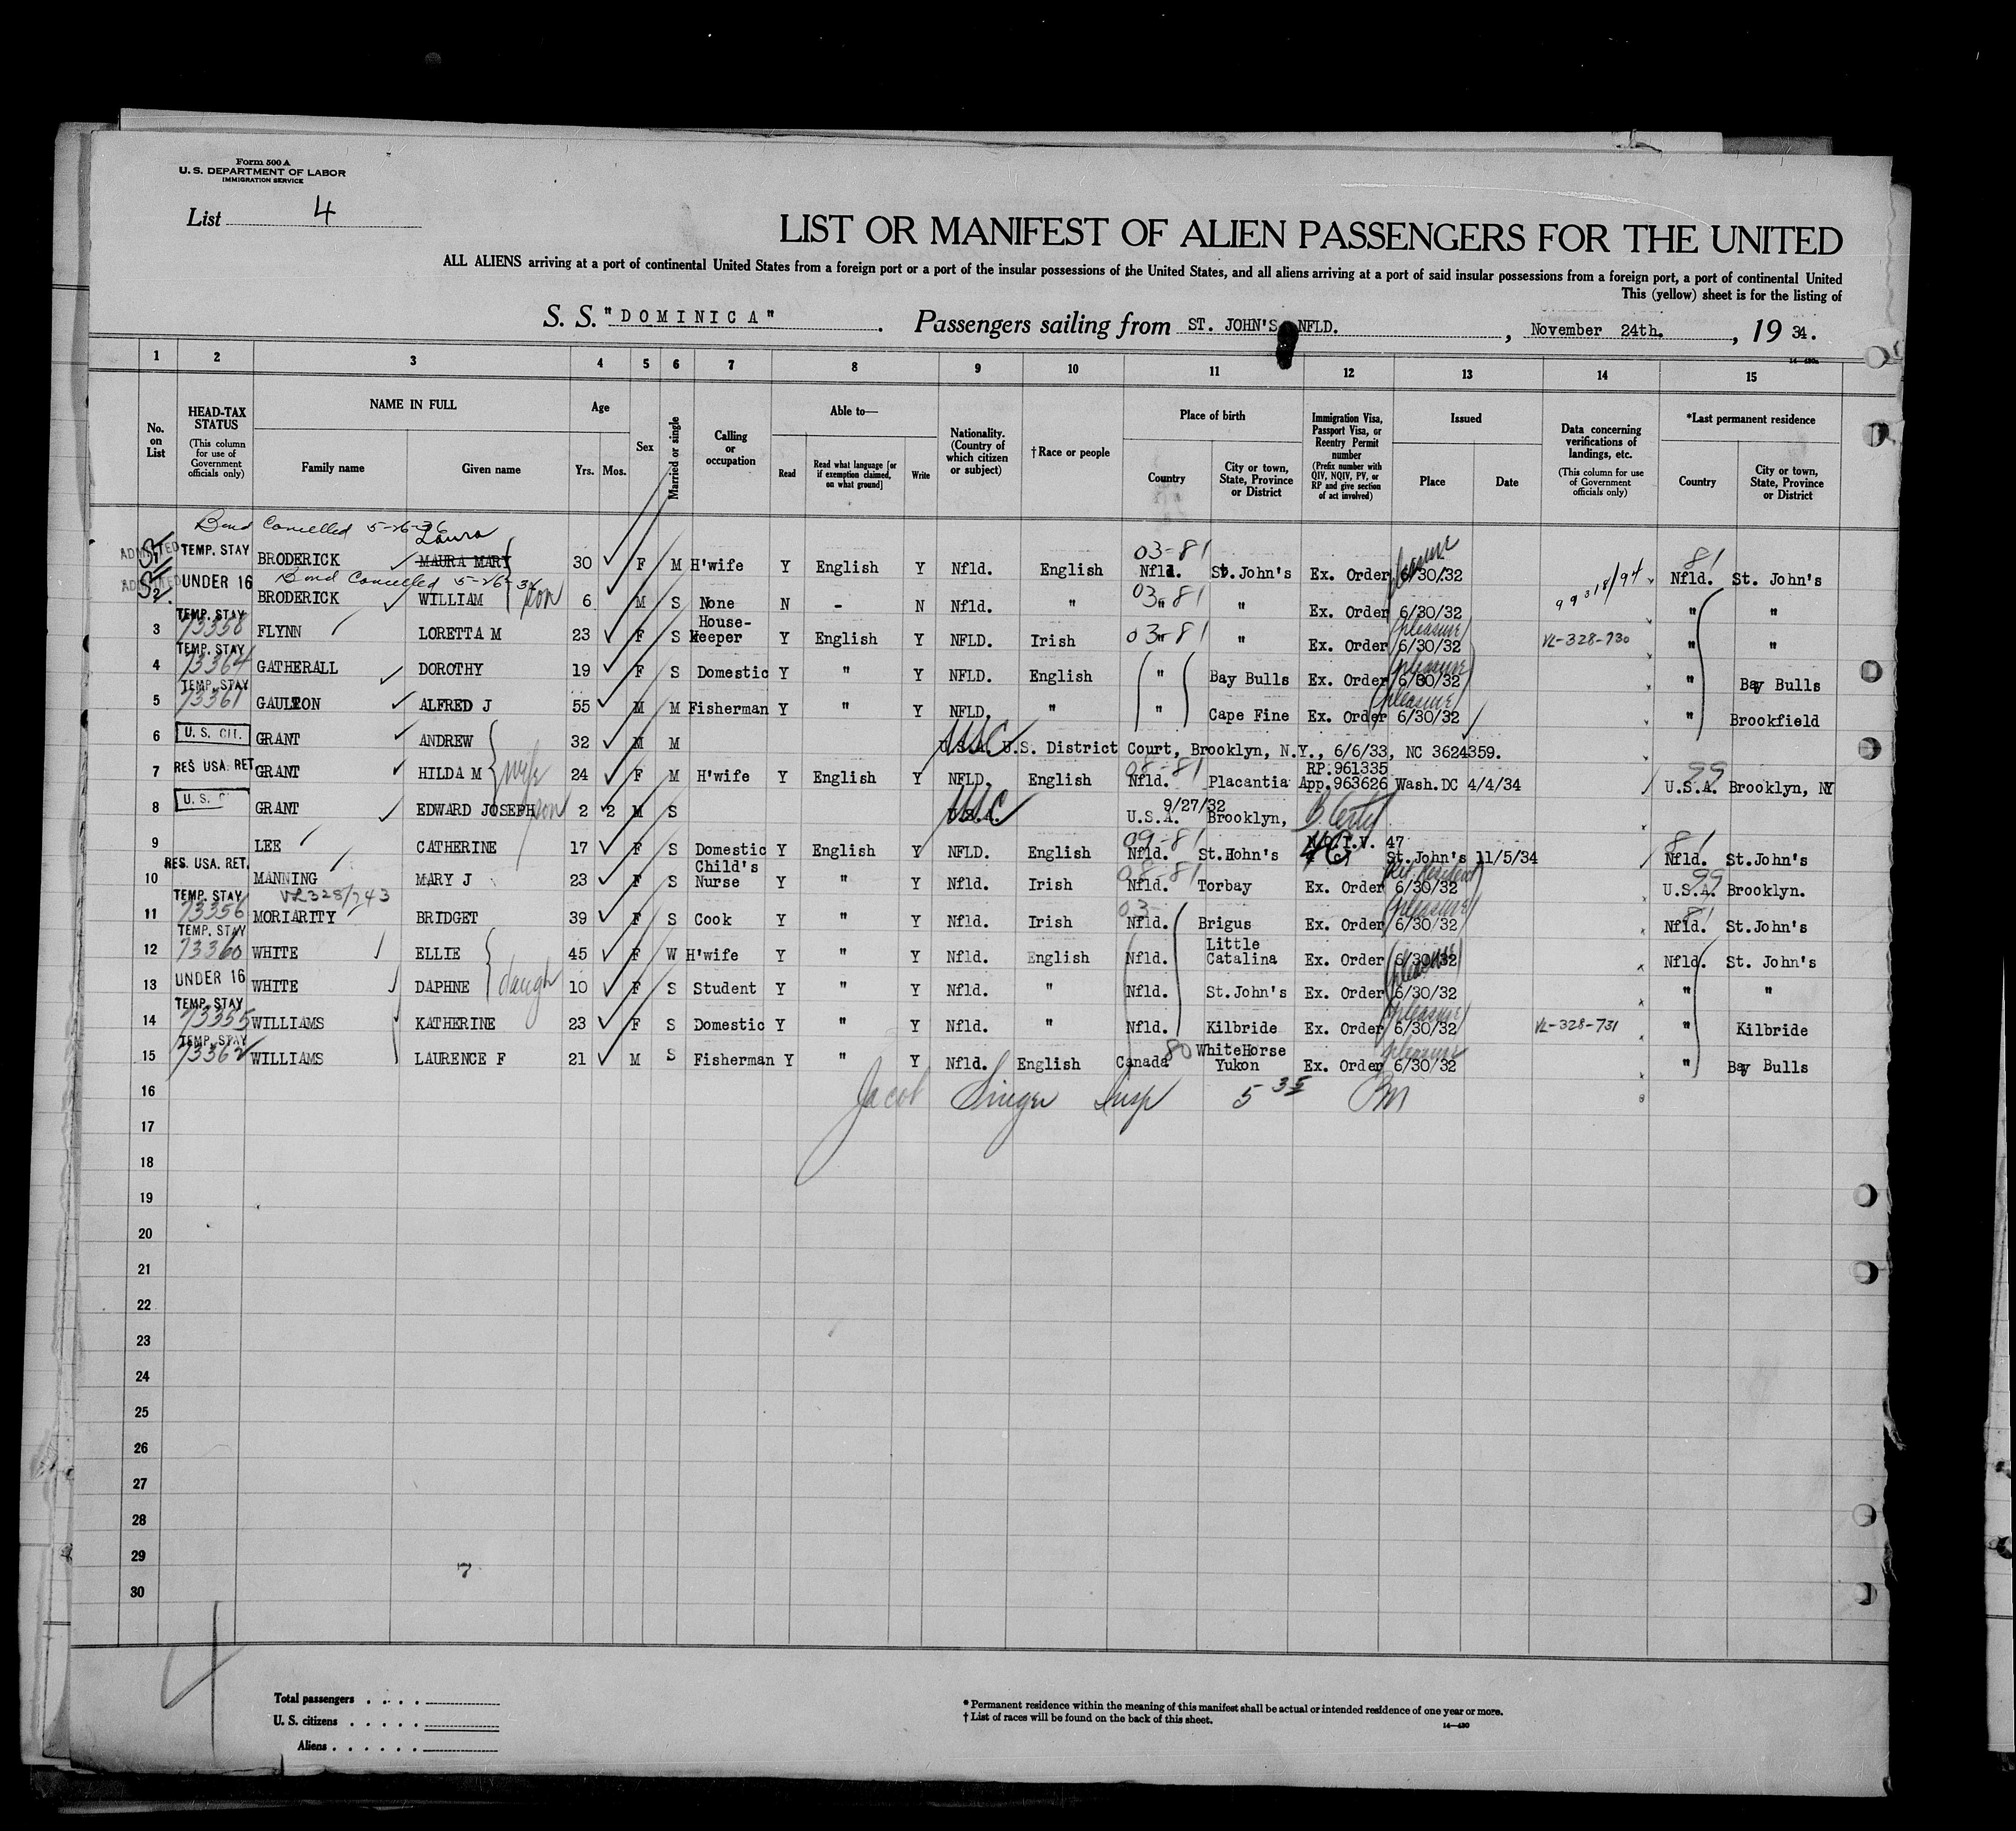 Form 500 A
U. S. DEPARTMENT OF LABOR
IMMIGRATION SERVICE
List 4
LIST OR MANIFEST OF ALIEN PASSENGERS FOR THE UNITED
ALL ALIENS arriving at a port of continental United States from a foreign port or a port of the insular possessions of the United States, and all aliens arriving at a port of said insular possessions from a foreign port, a port of continental United
This (yellow) sheet is for the listing of
S. S. "DOMINICA". Passengers sailing from ST. JOHN'S NFLD., November 24th., 19 34.
14—430a
1 2 3 4 5 6 7 8 9 10 11 12 13 14 15
No. on List
HEAD-TAX STATUS (This column for use of Government officials only)
NAME IN FULL Family name Given name
Age Yrs. Mos.
Sex
Married or single
Calling or occupation
Able to— Read Read what language [or if exemption claimed, on what ground] Write
Nationality. (Country of which citizen or subject)
†Race or people
Place of birth Country City or town, State, Province or District
Immigration Visa, Passport Visa, or Reentry Permit number (Prefix number with QIV, NQIV, PV, or RP and give section of act involved)
Issued Place Date
Data concerning verifications of landings, etc. (This column for use of Government officials only)
*Last permanent residence Country City or town, State, Province or District
Bond Cancelled 5-26-36
Laura
ADMITTED TEMP. STAY BRODERICK MAURA MARY 30 F M H'wife Y English Y Nfld. English 03-81 Nfld. St. John's Ex. Order 6/30/32 pleasure 81 Nfld. St. John's
Bond Cancelled 5-26-36
ADMITTED UNDER 16 BRODERICK WILLIAM son 6 M S None N - N Nfld. " 03-81 " " Ex. Order 6/30/32 99318/94 " "
3 TEMP. STAY 73358 FLYNN LORETTA M 23 F S House-keeper Y English Y NFLD. Irish 03-81 " " Ex. Order 6/30/32 pleasure VL-328-730 " "
4 TEMP. STAY 73364 GATHERALL DOROTHY 19 F S Domestic Y " Y NFLD. English " Bay Bulls Ex. Order 6/30/32 pleasure " Bay Bulls
5 TEMP. STAY 73361 GAULTON ALFRED J 55 M M Fisherman Y " Y NFLD. " " Cape Fine Ex. Order 6/30/32 pleasure " Brookfield
6 U. S. CIT. GRANT ANDREW 32 M M U.S.A. USC U.S. District Court, Brooklyn, N.Y., 6/6/33, NC 3624359.
7 RES USA. RET. GRANT HILDA M wife 24 F M H'wife Y English Y NFLD. English 08-81 Nfld. Placantia RP.961335 App.963626 Wash.DC 4/4/34 99 U.S.A. Brooklyn, NY
8 U. S. C GRANT EDWARD JOSEPH son 2 2 M S U.S.A. USC U.S.A. 9/27/32 Brooklyn, B. Certf
9 LEE CATHERINE 17 F S Domestic Y English Y NFLD. English 09-81 Nfld. St.Hohn's N.Q.I.V. 47 St.John's 11/5/34 81 Nfld. St.John's
10 RES. USA. RET. MANNING MARY J 23 F S Child's Nurse Y " Y Nfld. Irish 08-81 Nfld. Torbay Ex. Order 6/30/32 Ret Resident 99 U.S.A. Brooklyn.
VL328/743
11 TEMP. STAY 73356 MORIARITY BRIDGET 39 F S Cook Y " Y Nfld. Irish 03- Nfld. Brigus Ex. Order 6/30/32 pleasure 81 Nfld. St.John's
12 TEMP. STAY 73360 WHITE ELLIE 45 F W H'wife Y " Y Nfld. English Nfld. Little Catalina Ex. Order 6/30/32 pleasure Nfld. St. John's
13 UNDER 16 WHITE DAPHNE daugh 10 F S Student Y " Y Nfld. " Nfld. St.John's Ex. Order 6/30/32 " "
14 TEMP. STAY 73355 WILLIAMS KATHERINE 23 F S Domestic Y " Y Nfld. " Nfld. Kilbride Ex. Order 6/30/32 pleasure VL-328-731 " Kilbride
15 TEMP. STAY 73362 WILLIAMS LAURENCE F 21 M S Fisherman Y " Y Nfld. English Canada 80 WhiteHorse Yukon Ex. Order 6/30/32 pleasure " Bay Bulls
16 Jacob Singer Insp 5 35 Pm
17
18
19
20
21
22
23
24
25
26
27
28
29
30
7
4
Total passengers . . . .
U. S. citizens . . . . .
Aliens . . . . . .
* Permanent residence within the meaning of this manifest shall be actual or intended residence of one year or more.
† List of races will be found on the back of this sheet.
14—430